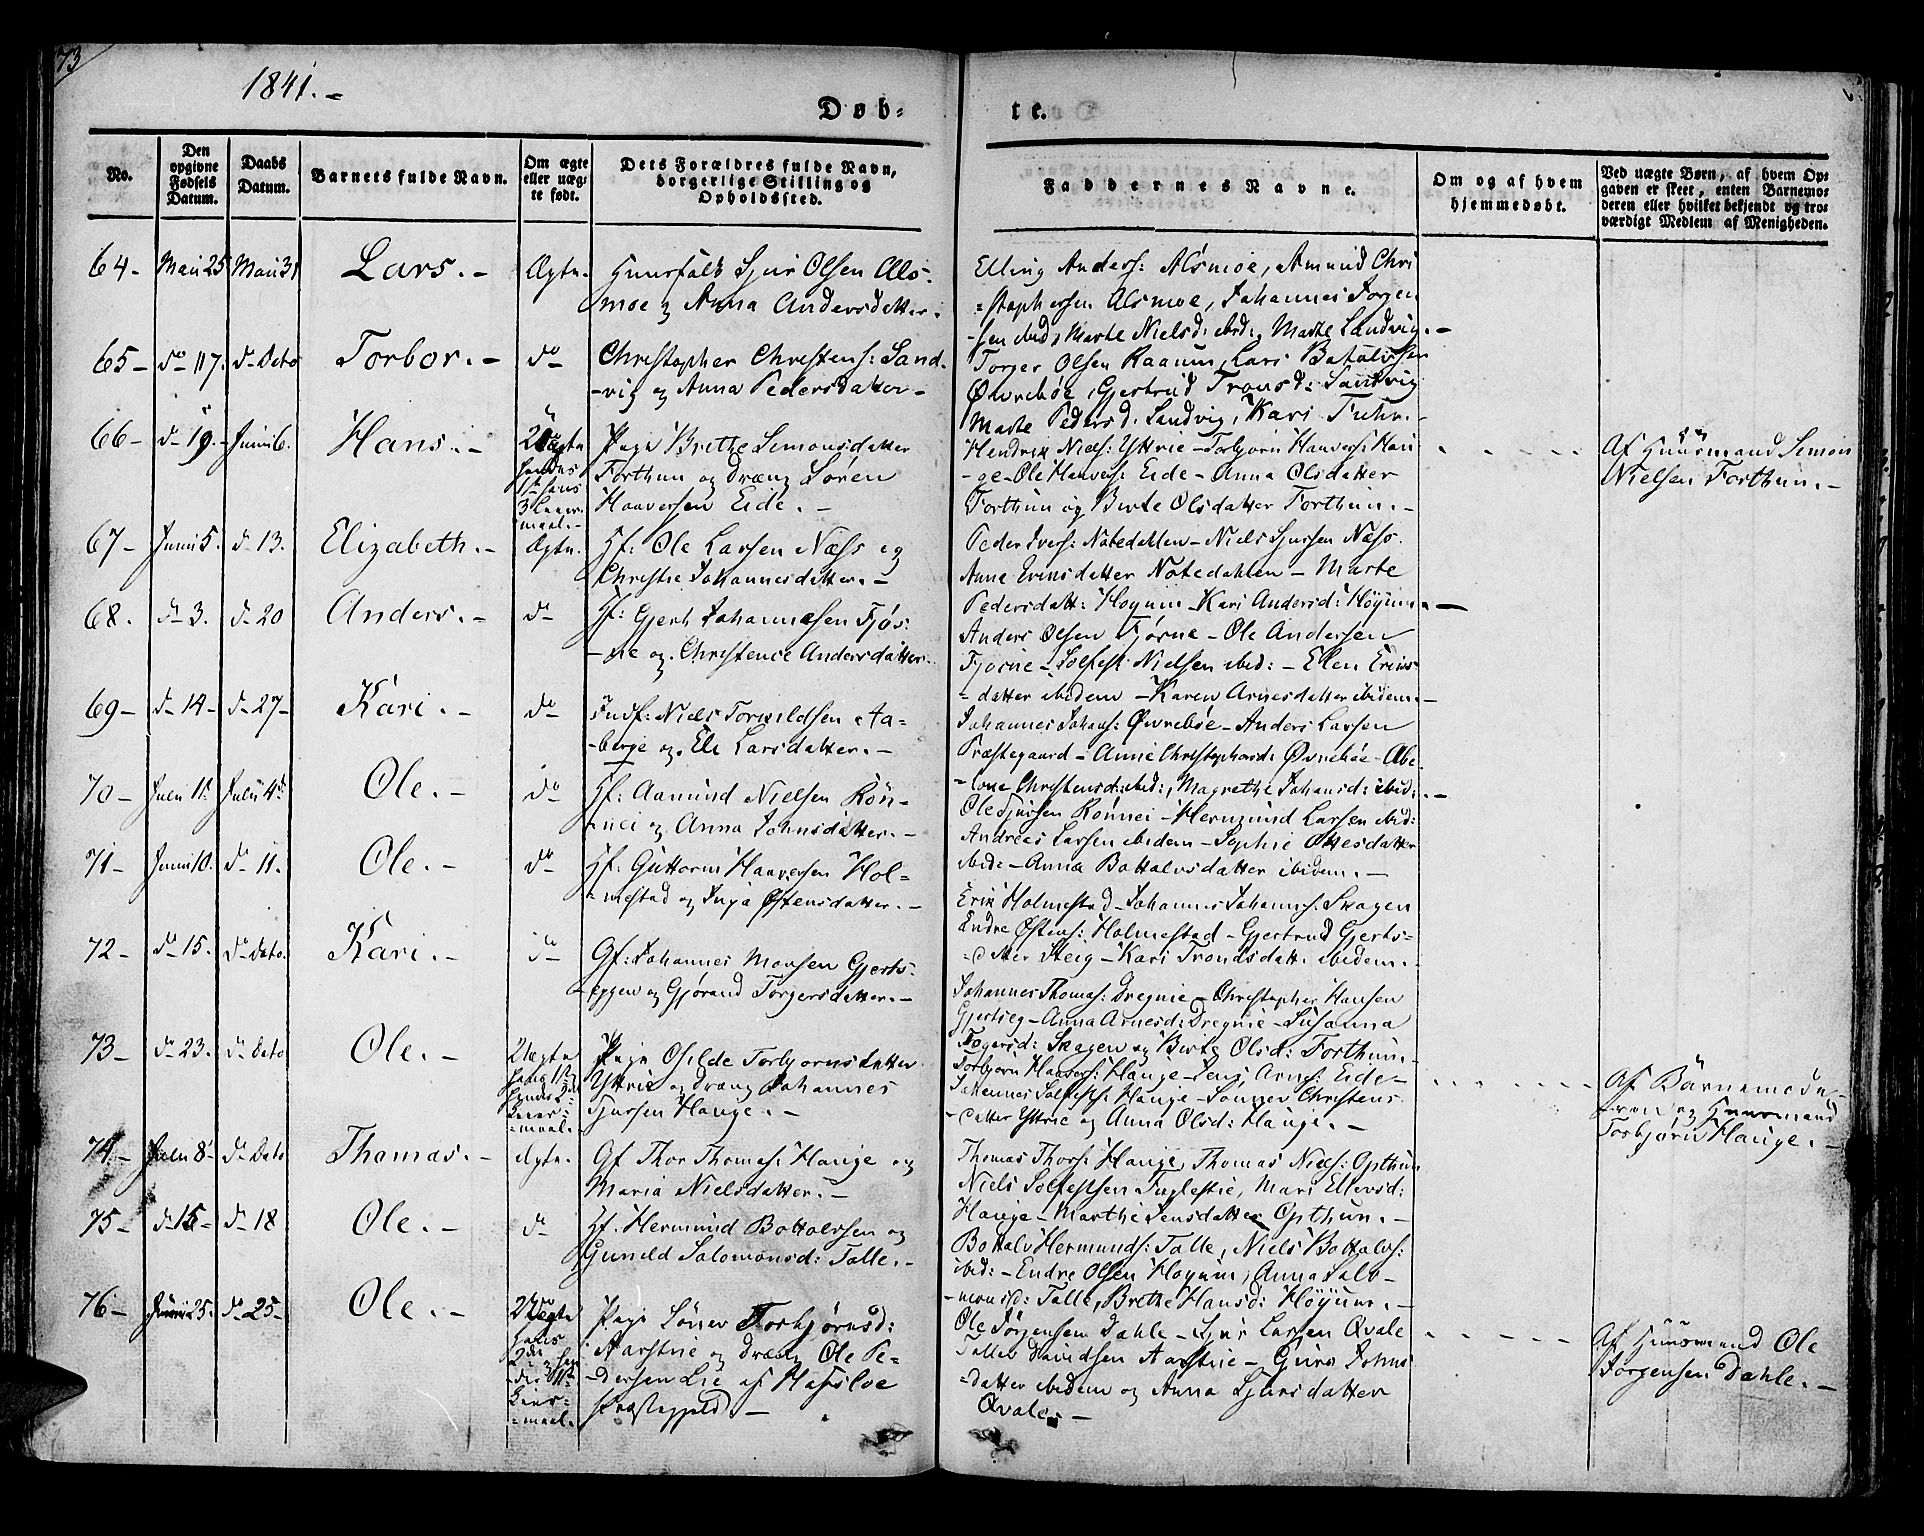 73
1841.-
Døb-
te.
No.
Den opgivne Fødsels Datum.
Daabs Datum.
Barnets fulde Navn.
Om ægte eller uægte født.
Dets Forældres fulde Navn, borgerlige Stilling og Opholdssted.
Faddernes Navne.
Om og af hvem hjemmedøbt.
Ved uægte Børn, af hvem Opgaven er skeet, enten Barnemoderen eller hvilket bekjendt og troværdigt Medlem af Menigheden.
64- Maii 25 Maii 31 Lars.- Ægte. Huusfolk Sjur Olsen Als-
moe og Anna Andersdatter.
Elling Anders: Alsmoe, Amund Chri
-stophersen Alsmoe, Johannes Jorgen
-sen ibid, Marte Nielsd: ibid: Marte Landvig.-
65- do 17. do Dato Torbor.- do Christopher Christens: Sand-
-vig og Anna Pedersdatter-
Torger Olsen Raaum, Lars Batulfsen
Øvrebøe, Gjertrud Tronsd: Sandvig
Marte Pedersd. Sandvig, Kari Fuhr.-
66- do 19.- Junii 6. Hans.- Uægte Pige Brethe Simonsdatter
Forthun og Dreng Søren
Haaversen Eide.-
hendes 1ste hans 3 Leiermaal.-
Hendrik Niels: Yttrie- Torbjorn Haavers: Hau
-ge- Ole Haavers: Eide- Anna Olsdatter
Forthun og Birte Olsdatter Forthun.-
Af Huusmand Simon
Nielsen Forthun.-
67- Junii 5. do 13. Elizabeth.- Ægte. Hf: Ole Larsen Næss og
Christie Johannesdatter.-
Peder Ivers: Notedahlen- Niels Sjursen Næss.
Anne Erinsdatter Notedahlen- Marte
Pedersdatt: Hoyum- Kari Andersd: Høyum.-
68. do 3. do 20 Anders.- do Hf: Gjert Johannesen Fjøs:
-ne og Christence Andersdatter.
Anders Olsen Fjørne- Ole Andersen
Fjørne- Solfest Nielsen ibid:- Elen Erins-
-datter ibidem- Karen Arnesdatter ibidem.-
69- do 14- do 27- Kari.- do Indf: Niels Torvildsen Aa-
-berge og Eli Larsdatter.-
Johannes Johans: Øvrebøe- Anders Larsen
Præstegaard- Anne Christophersd: Øvrebøe- Abe-
-lone Christensd: ibid:, Magrethe Johansd: ibid:.-
70- Julii 1ste Julii 4de Ole.- do Hf: Aamund Nielsen Røn-
-nei og Anna Johnsdatter.-
Ole Sjursen Rønnei- Hermund Larsen ibid:
Andreas Larsen ibidem- Sophie Ottesdatter
ibid:- Anna Bottolvsdatter ibidem.-
71- Junii 10. do 11. Ole.- do Hf: Guttorm Haaversen Hol-
-mestad og Inga Østensdatter.-
Erik Holmestad- Johannes Johanns: Skagen
Endre Østens: Holmestad- Gjertrud Gjerts-
-datter Steig- Kari Trondsdatt: ibidem.-
72- do 15. do Dato. Kari.- do Gf: Johannes Monsen Gjerts-
-eggen og Gjørand Torgersdatter.-
Johannes Thomas: Dregnie- Christopher Hansen
Gjertseg- Anna Arnesd: Dregnie- Susanna
Togersd: Skagen og Birte Olsd: Forthun.-
73- do 23. do Dato Ole.- Uægte Pige Oselde Torbjornsdatter
Yttrie og Dreng Johannes
Sjursen Hauge.-
hans 1ste hendes 2det Leiermaal.-
Torbjorn Haavers: Hauge- Jens Arns: Eide-
Johannes Solfests: Hauge- Sonnev Christens-
-datter Yttrie og Anna Olsd: Hauge.-
Af Barnemode-
-ren og Huusmand
Torbjørn Hauge.-
74- Julii 8- do Dato Thomas.- Ægte. Gf Thor Thomas: Hauge og
Maria Nielsdatter.-
Thomas Thors: Hauge, Thomas Niels: Opthun
Niels Solfestsen Fuglestie, Mari Ellersd:
Hauge- Marthe Jensdatter Opthun.-
75- do 15- do 18 Ole.- do Hf: Hermund Bottolvsen og
Gunild Salomonsd: Talle.-
Bottolv Hermunds: Talle, Niels Bottolvs:
ibid:- Endre Olsen Hoyum, Anna Salo-
-monsd: Talle, Brethe Hansd: Høyum.-
76- Junii 25. do 25- Ole.- Uægte Pige Sønev Torbjørnsd:
Aarstrie og Dreng Ole Pe-
-dersen Lie af Hafsloe
Præstegjeld.-
Hans 2det og hendes 1ste Leiermaal.
Ole Jørgensen Dahle- Sjur Larsen Qvale
Tollev Davidsen Aarstrie- Guro Johns
-datter ibidem og Anna Sjursdatter
Qvale.-
Af Huusmand Ole
Jørgensen Dahle.-